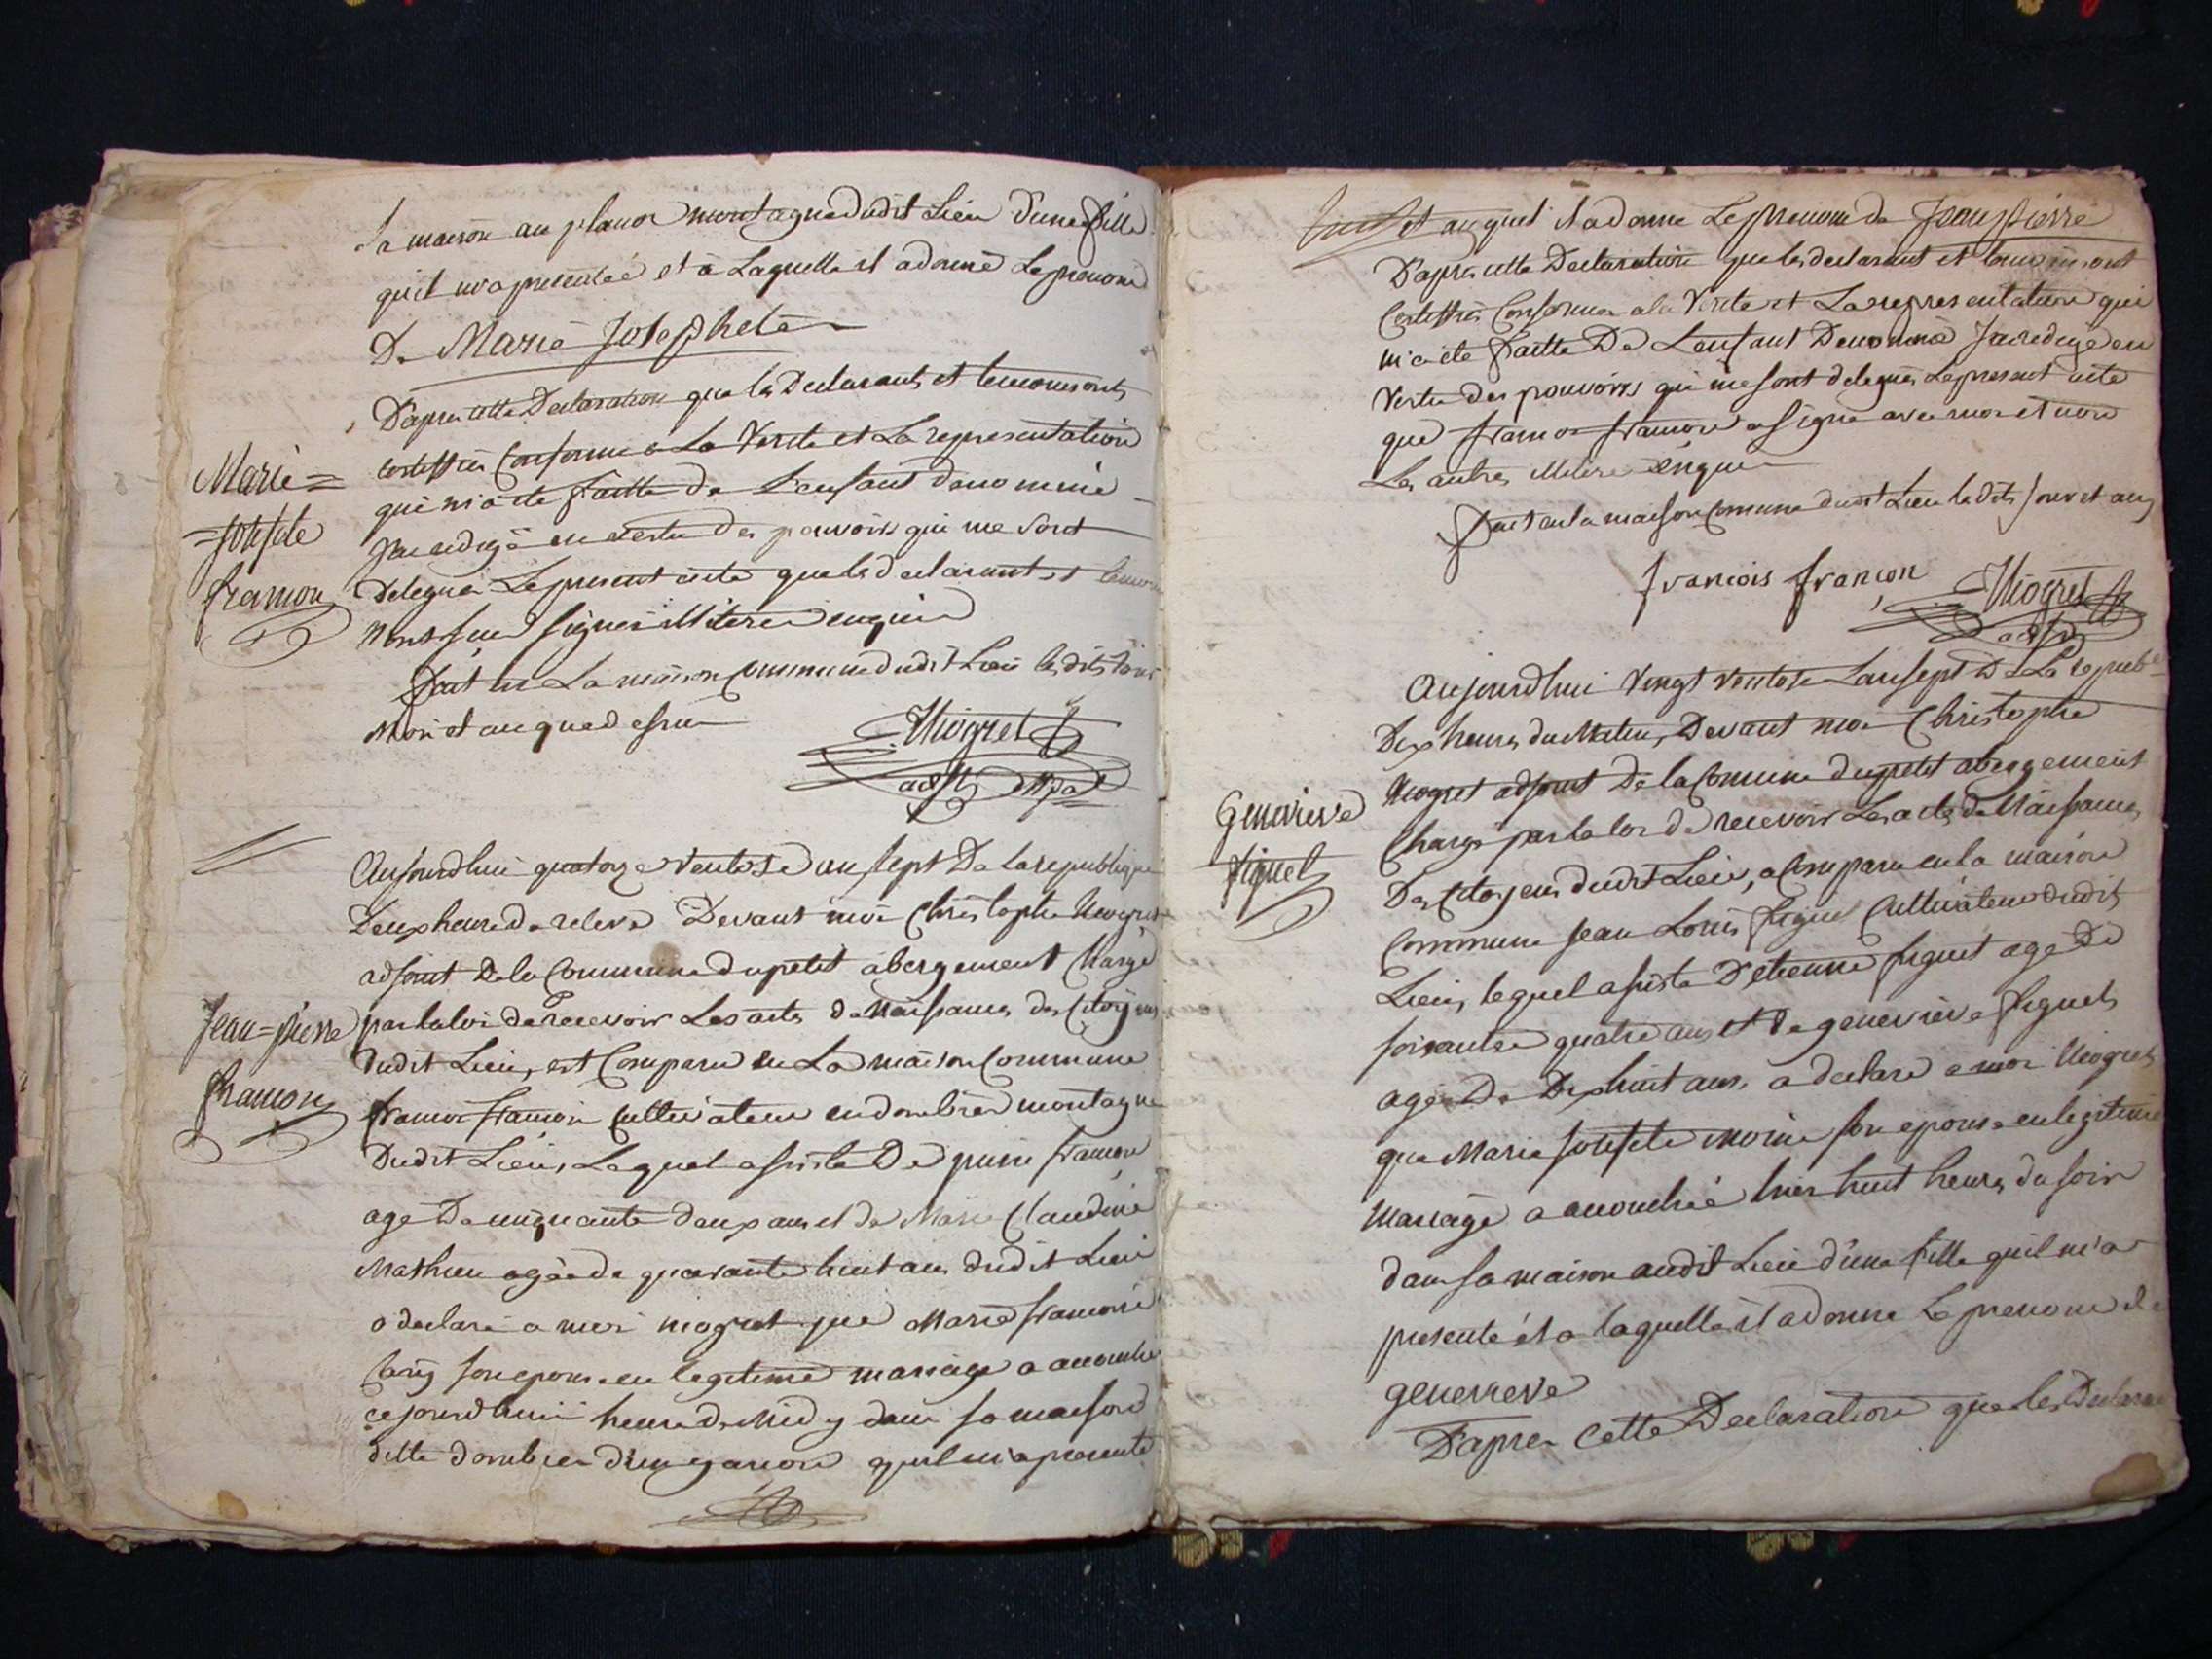 sa maison au planoi montagne dudit Lieu d'une fille
quil m'a presentée et a Laquelle il a donné Le prenom
De Marie Josephete
D'apres cette Declaration que les Declarants et temoins ont
certiffiés Conforme a La Verité et La representation
Marie=
qui m'a ete faitte de L'enfant denommé
=Josefete
J'ai redigé en vertu des pouvoirs qui me sont
francon
delegués Le present acte que les declarants et temoins
n'ont seu signer Miterer enquis
fait en La maison Commune dudit Lieu les dits jour
Mois et an que dessus
Niogret
adjt mpal
Aujourdhui quatorze Ventose an sept De La republique
Deux heure de relevé Devant moi Christophe Niogret
adjoint De la Commune du petit abergement Chargé
Jean=pierre
par la loi de recevoir Les actes de Naissances des Citoyens
dudit Lieu, est Comparu en La maison Commune
francon
francois francon Cultivateur en dombier montagne
Dudit Lieu, Lequel assisté De pierre francon
agé De cinquante deux ans et de Marie Claudine
Mathieu agée de quarante huit ans dudit Lieu
a declaré a moi niogret que Marie francoise
son epouse en legitime mariage a accouché
cejourdhuii heure de Midy dans sa maison
ditte dombier d'un garcon quil m'a presenté
et auquel il a donne Le prenom de Jean pierre
D'apres cette Declaration que les declarant et temoins ont
Certiffiés Conforme a la Verité et La representation qui
m'a ete faitte De L'enfant Denommé J'ai redigé en
Vertu des pouvoirs qui me sont delegués Le present acte
que francois francon a signé avec moi et non
Les autres Miterer enquis
fait en la maison Commune dudit Lieu les dits jour et an
francois francon
Niogret
adjt
Aujourdhui Vingt Ventose L'an sept De La republ
Dix heures du Matin, Devant moi Christophe
Niogret adjoint De la Commune du petit abergement
Genevieve
Chargé par la loi De recevoir Les actes de Naissances
figuet
Des Citoyens dudit Lieu, a Comparu en la maison
Commune Jean Louis figuet Cultivateur dudit
Lieu, lequel assisté D'etienne figuet agé De
soixante quatre ans et De genevieve figuet
agée De Dix huit ans, a declaré a moi Niogret
que Marie Josefete moine son epouse en legitime
Mariage a accouchée hier huit heures du soir
dans sa maison audit Lieu d'une fille quil m'a
presenté et a laquelle il a donné Le prenom de
genevieve
D'apres Cette Declaration que les Declarants